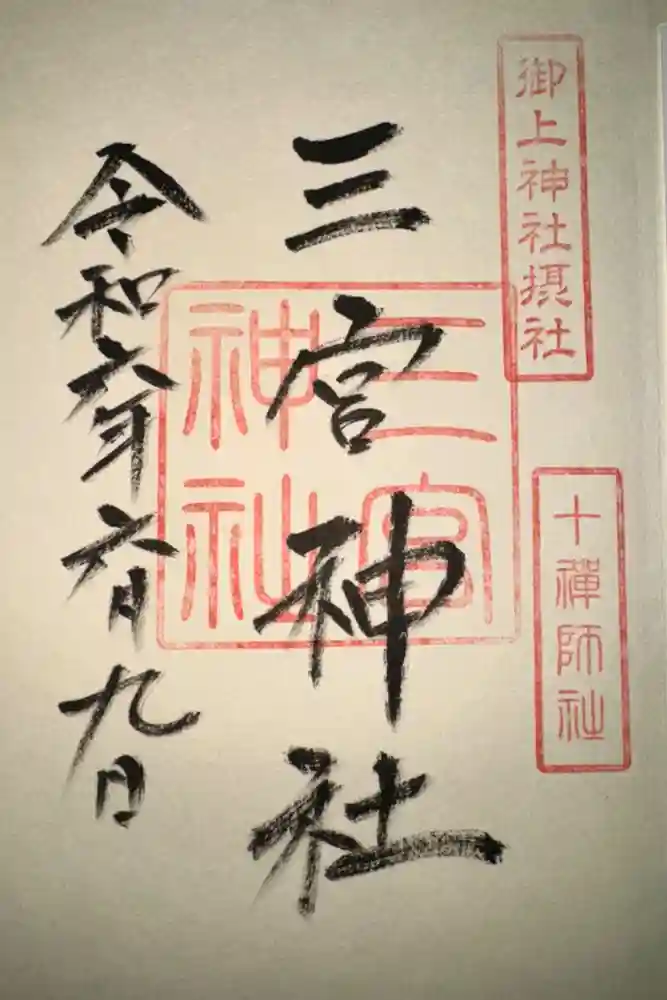 御上神社摂社
十禅師社
三宮神社
三宮
神社
令和六年六月九日